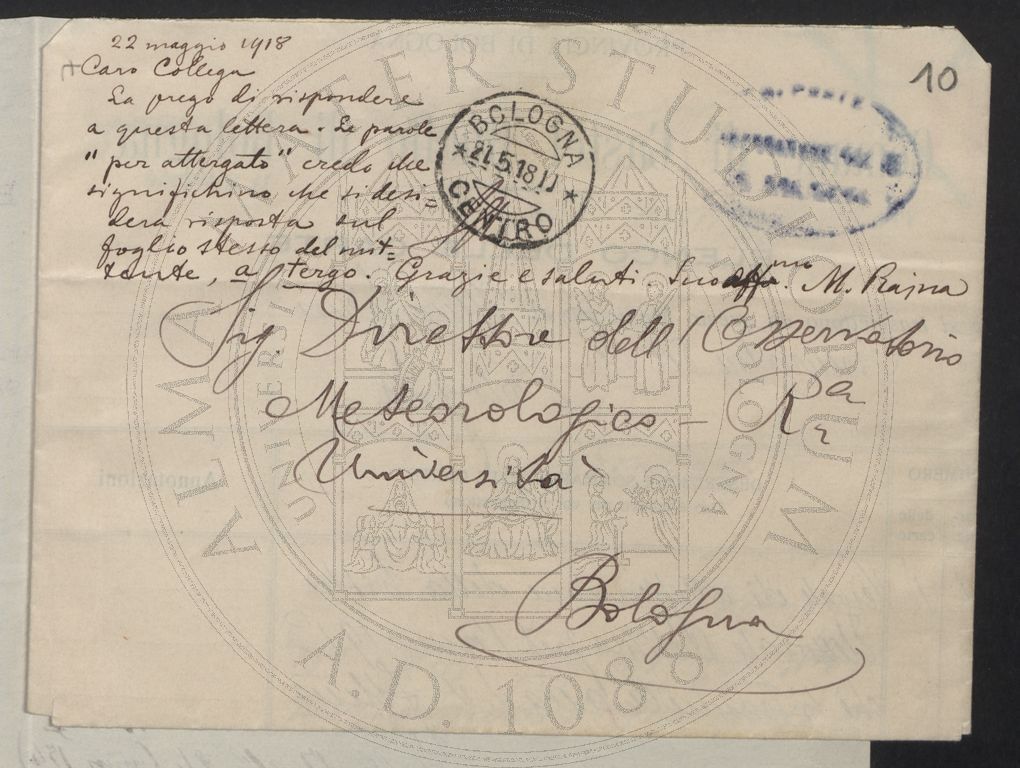 22 maggio 1918
Caro Collega
La prego di rispondere
a questa lettera. Le parole
"per attergato" credo che
significhino che si desi=
dera risposta sul
foglio stesso del mit=
tente, a tergo. Grazie e saluti. Suo affmo. M. Rajna
10
BOLOGNA
21.5.18
CENTRO
Sig. Direttore dell'Osservatorio
Meteorologico - Ra
Università
Bologna
ALMA MATER STUDIORUM
UNIVERSITÀ DI BOLOGNA
A.D. 1088